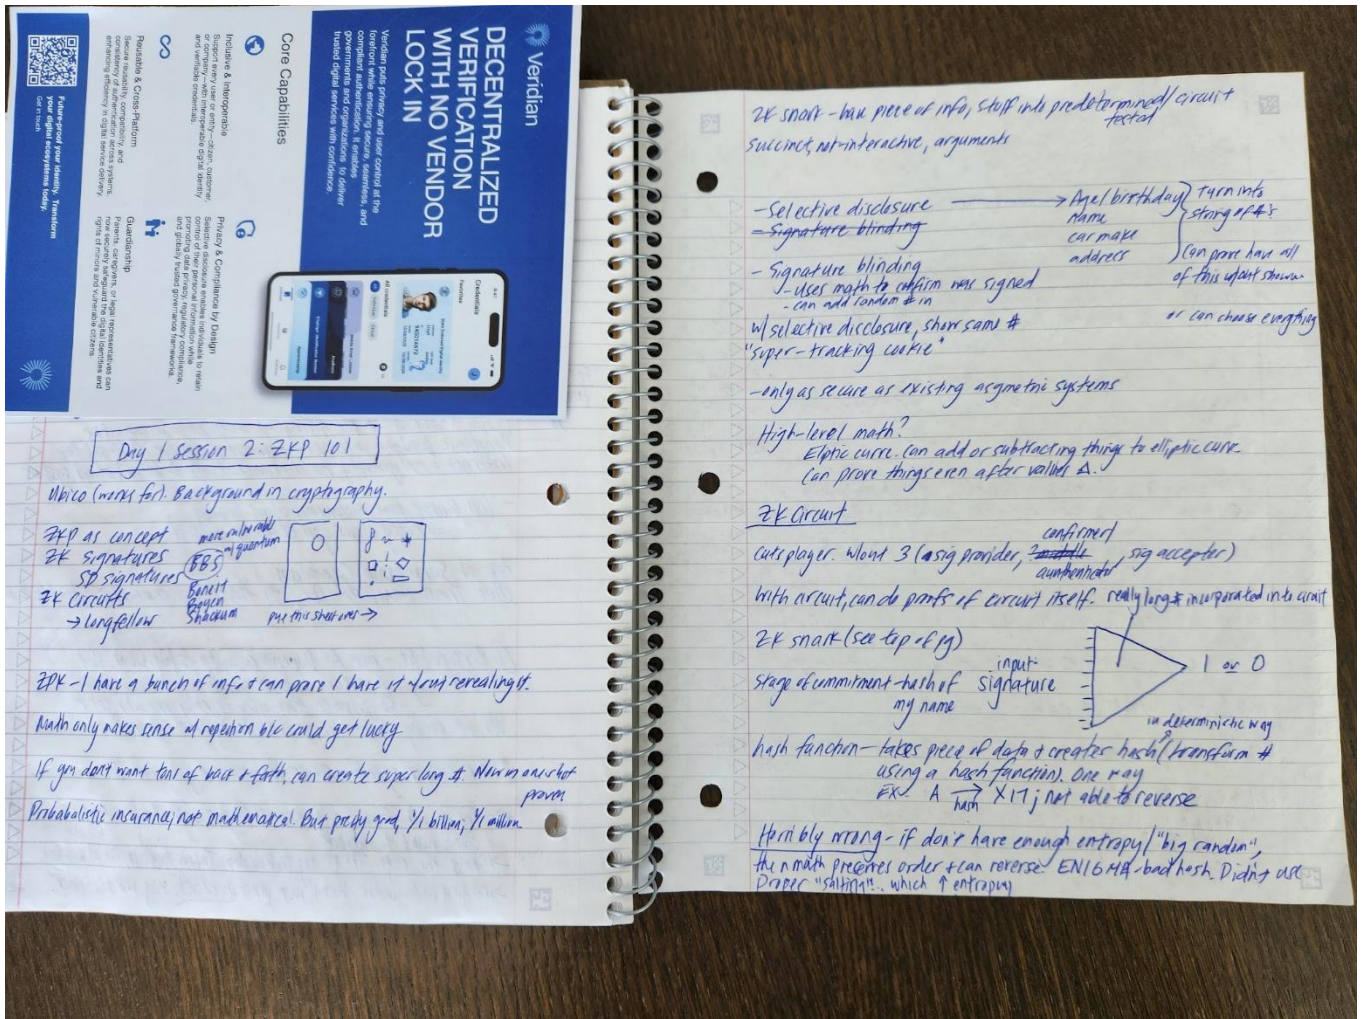 Veridian
DECENTRALIZED
VERIFICATION
WITH NO VENDOR
LOCK IN
Veridian puts privacy and user control at the
forefront while ensuring secure, seamless, and
compliant authentication. It enables
governments and organizations to deliver
trusted digital services with confidence.
Core Capabilities
Inclusive & Interoperable
Support every user or entity—citizen, customer,
or company—with interoperable digital identity
and verifiable credentials.
Privacy & Compliance by Design
Selective disclosure enables individuals to retain
control of their personal information while
promoting data privacy, regulatory compliance,
and globally trusted governance frameworks.
Reusable & Cross-Platform
Secure reusability, compatibility, and
consistency of authentication across systems,
enhancing efficiency in digital service delivery.
Guardianship
Parents, caregivers, or legal representatives can
now securely safeguard the digital identities and
rights of minors and vulnerable citizens.
Future-proof your identity. Transform
your digital ecosystems today.
Get in touch
Credentials
Favorites
All credentials
Day 1 Session 2: ZKP 101
Ubico (works for). Background in cryptography.
ZKP as concept
ZK signatures
SD signatures
BBS
more vulnerable
w/ quantum
Boneh
Boyen
Shackum
ZK Circuits
→ Longfellow
put this sheet over →
ZPK - I have a bunch of info + can prove I have it w/out revealing it.
Math only makes sense w/ repetion b/c could get lucky
If you don't want tons of back + forth, can create super long #. Now in one shot
proven
Probabalistic insurance, not mathematical. But pretty good, 1/1 billion, 1/1 million.
ZK snark - have piece of info, stuff into predetermined/ circuit
tested
Succinct, not-interactive, arguments
- Selective disclosure → Age/birthday
Name
car make
address
turn into
string of #s
- Signature blinding
Can prove have all
of this w/out showin
or can choose everything
- Signature blinding
- uses math to confirm was signed
- can add random # in
w/ selective disclosure, show same #
"super-tracking cookie"
- only as secure as existing asymetric systems
High-level math?
Elptic curve. Can add or subtracting things to elliptic curve.
Can prove things even after values Δ.
ZK Circuit
Cuts player. W/out 3 (a sig provider, confirmer/
aunthenticator, sig accepter)
With circuit, can do proofs of circuit itself.
really long # incorporated into ciruit
ZK snark (see top of pg)
Stage of commitment - hash of
my name
input
signature
1 or 0
in deterministic way
hash function - takes piece of data + creates hash (transform #
using a hash function). One way
EX. A → hash X17; not able to reverse
Horribly wrong - if don't have enough entropy/"big random",
then math preserves order + can reverse. ENIGMA - bad hash. Didn't use
Proper "salting".. which ↑ entropuy